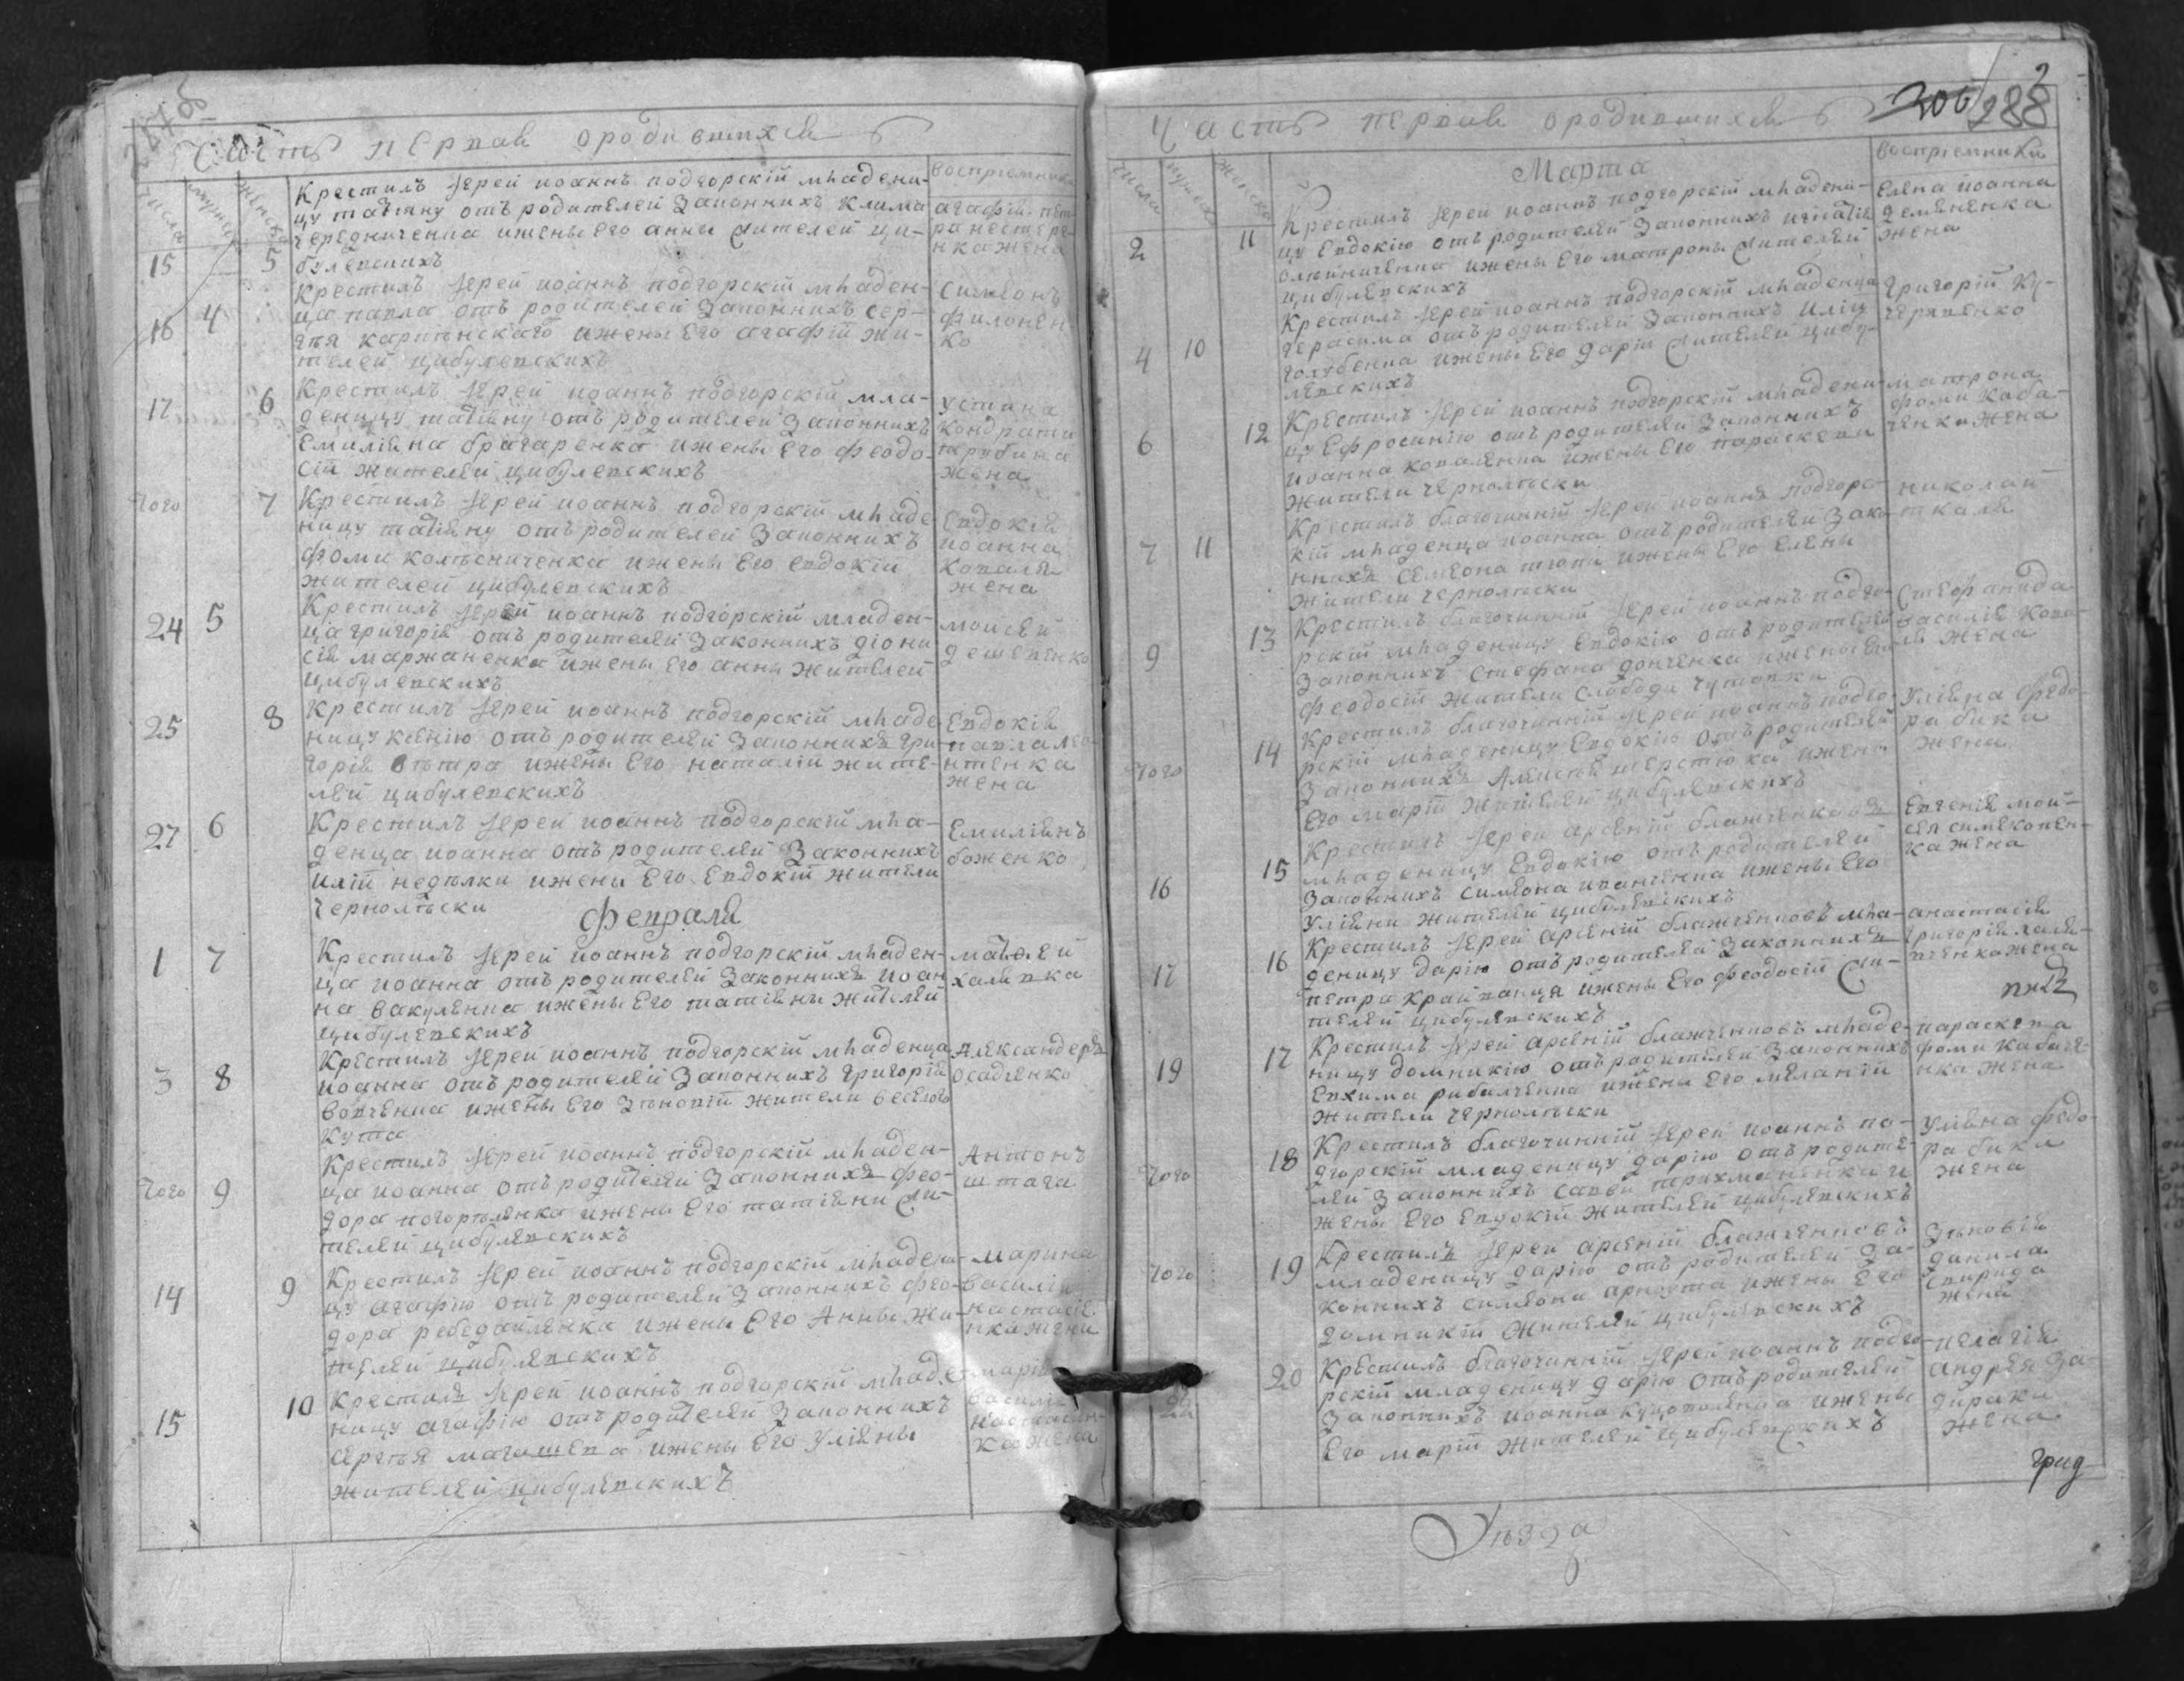 Часть первая о родившихся
числа мужеск женска
восприемники
15 5
Крестилъ Іерей иоаннъ подгорскій младени-
цу татіяну отъ родителей Законнихъ Клима
Чередниченка ижены его анны жителей ци-
булевскихъ
агафія пет-
ра нестере-
нка жена
16 4
Крестилъ Іерей иоаннъ подгорскій младен-
ца павла отъ родителей Законнихъ сер-
гея ижены Его агафій жи-
телей цибулевскихъ
симеонъ
филонен
ко
17 6
Крестилъ Іерей иоаннъ подгорскій мла-
деницу татіяну отъ родителей Законнихъ
Емиліяна ижены Его феодо-
сій жителей цибулевскихъ
устина
Кондрата
трубина
жена
Того 7
Крестилъ Іерей иоаннъ подгорскій младе
ницу татіяну отъ родителей Законнихъ
фоми колѣсниченка ижени Его евдокіи
жителей цибулевскихъ
Евдокія
иоанна
Коваля
жена
24 5
Крестилъ Іерей иоаннъ подгорскій младен-
ца григорія отъ родителей Законнихъ діони
сія маржаненка ижены Его анны жителей
цибулевскихъ
моисей
25 8
Крестилъ Іерей иоаннъ подгорскій младе
ницу ксенію отъ родителей Законнихъ гри-
горія ижены Его наталіи жите-
лей цибулевскихъ
Евдокія
павла
жена
27 6
Крестилъ Іерей иоаннъ подгорскій мла-
денца иоанна отъ родителей Законнихъ
илій недѣлки ижены Его Евдокій жители
Чернолѣски
Емиліянъ
боженко
Февраля
1 7
Крестилъ Іерей иоаннъ подгорскій младен-
ца иоанна отъ родителей Законнихъ иоан
на вакуленка ижены Его татіяны жителей
цибулевскихъ
матвей
халявка
3 8
Крестилъ Іерей иоаннъ подгорскій младенца
иоанна отъ родителей Законнихъ григорій
вовченка ижены Его Зѣновій жители веселого
Кута
Александеръ
осадченко
Того 9
Крестилъ Іерей иоаннъ подгорскій младен-
ца иоанна отъ родителей Законнихъ фео-
дора погорѣленка ижены Его татіяни жи-
телей цибулевскихъ
Антонъ
14 9
Крестилъ Іерей иоаннъ подгорскій младени-
цу агафію отъ родителей Законнихъ фео-
дора ижены Его Анны жи-
телей цибулевскихъ
марина
василія
настасіе-
нка жена
15 10
Крестилъ Іерей иоаннъ подгорскій младе-
ницу агафію отъ родителей Законнихъ
сергѣя ижены Его Уліяны
жителей цибулевскихъ
марина
василія
настасіен-
ка жена
288
Часть первая о родившихся
числа мужеск женска
восприемники
Марта
2 11
Крестилъ Іерей иоаннъ подгорскій младени-
цу Евдокію отъ родителей Законнихъ игнатія
олейниченка ижены Его матроны жителей
цибулевскихъ
Елена иоанна
демяненка
жена
4 10
Крестилъ Іерей иоаннъ подгорскій младенца
герасима отъ родителей Законнихъ иліи
голубенка ижены Его Дарій жителей цибу-
левскихъ
григорій Ку-
черявенко
6 12
Крестилъ Іерей иоаннъ подгорскій младени-
цу Ефросинію отъ родителей Законнихъ
иоанна коваленка ижены Его параскеви
жители Чернолѣски
матрона
фоми каба-
ченка жена
7 11
Крестилъ благочинній Іерей иоаннъ подгорс-
кій младенца иоанна отъ родителей Зако-
ннихъ семеона ижены Его Елены
жители Чернолѣски
николай
ткаля
9 13
Крестилъ благочинній Іерей иоаннъ подго-
рскій младеницу Евдокію отъ родителей
Законнихъ стефана донченка ижены Его
феодосій жители слободи Чутовки
стефанида
василія Кова-
ля жена
Того 14
Крестилъ благочинній Іерей иоаннъ подго-
рскій младеницу Евдокію отъ родителей
Законнихъ Алексѣя шерстюка ижены
Его марій жителей цибулевскихъ
Уліяна федо-
ра бика
жена
16 15
Крестилъ Іерей арсеній блажченковъ
младеницу Евдокію отъ родителей
Законнихъ симеона иванченка ижены Его
Уліяни жителей цибулевскихъ
Евгенія мой-
сея
ка жена
17 16
Крестилъ Іерей арсеній блажченковъ мла-
деницу дарію отъ родителей Законнихъ
петра ижены Его феодосій жи-
телей цибулевскихъ
анастасія
григорія халя-
вченка жена
19 17
Крестилъ Іерей арсеній блажченковъ младе-
ницу домникію отъ родителей Законнихъ
Евхима рибалченка ижены Его меланій
жители Чернолѣски
параскева
фоми кабаче-
нка жена
Того 18
Крестилъ благочинній Іерей иоаннъ по-
дгорскій младеницу дарію отъ родите-
лей Законнихъ савви и
жены Его Евдокій жителей цибулевскихъ
Уліяна федо-
ра бика
жена
Того 19
Крестилъ Іерей арсеній блажченковъ
младеницу дарію отъ родителей За-
коннихъ симеона арнаута ижены Его
домникій жителей цибулевскихъ
Зѣновія
данила
свирида
жена
22 20
Крестилъ благочинній Іерей иоаннъ подго-
рскій младеницу дарію отъ родителей
Законнихъ иоанна ижены
Его марій жителей цибулевскихъ
пелагія
андрея За-
дираки
жена
град
Уѣзда